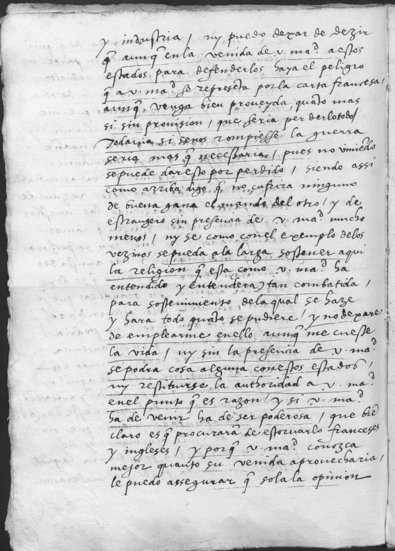 y industria / ny puedo dexar de dezir
q̃ aunq̃ en la venida de v. mad. a estos
estados para defenderlos haya el peligro
q̃ a v. mad. se representa por la carta francesa,
aunq̃ venga bien proueyda, quãto mas
si sin prouision, que seria perderlo todo /
Todauia si se nos rompiesse la guerra
seria mas q̃ necessaria / pues no viniẽdo
se puede dar esto por perdido / siendo assi
como arriba dige, q̃ ne suffrira ninguno
de buena gana el mando del otro / y de
estrangero sin presencia de v. mad. mucho
menos / ny se como con el exemplo de los
vezinos se pueda a la larga sostener aqui
la religion q̃ esta como v. mad. ha
entendido y entendera / tan combatida /
para sostenimiento de la qual se haze
y hara todo quãto se pudiere / y no dexare
de emplearme en ello, aunq̃ me cueste
la vida / ny sin la presencia de v. mad.
se podra cosa alguna con estos estados /
ny restituyrse la authoridad a v. mad.
en el punto q̃ es razon / y si v. mad.
ha de venir ha de ser poderosa / que biẽ
claro es q̃ procurarã de estoruarlo franceses
y ingleses / y porq̃ v. mad. conozca
mejor quanto su venida aprouecharia,
le puedo assegurar q̃ sola la opinion